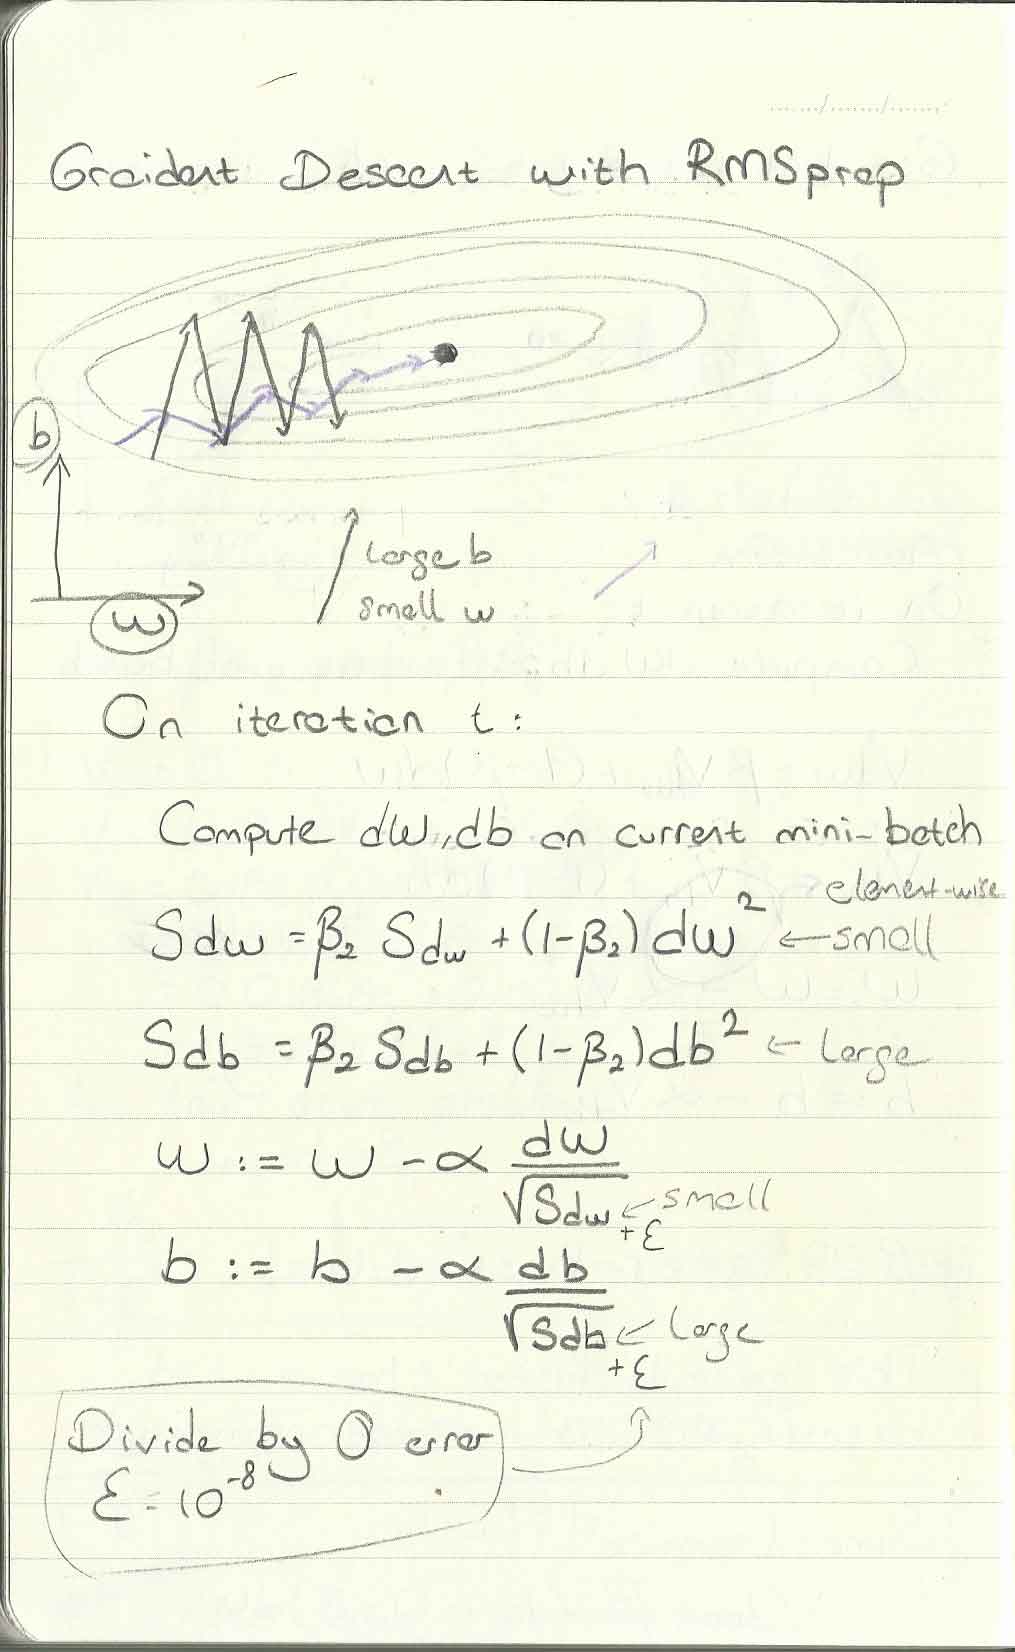 Graident Descent with RMSprop
b
w
large b
small w
On iteration t:
Compute dw, db on current mini-batch
element-wise
Sdw = β₂ Sdw + (1-β₂) dw² ← small
Sdb = β₂ Sdb + (1-β₂) db² ← large
w := w - α dw / √Sdw + ε ← small
b := b - α db / √Sdb + ε ← large
Divide by 0 error
ε = 10⁻⁸